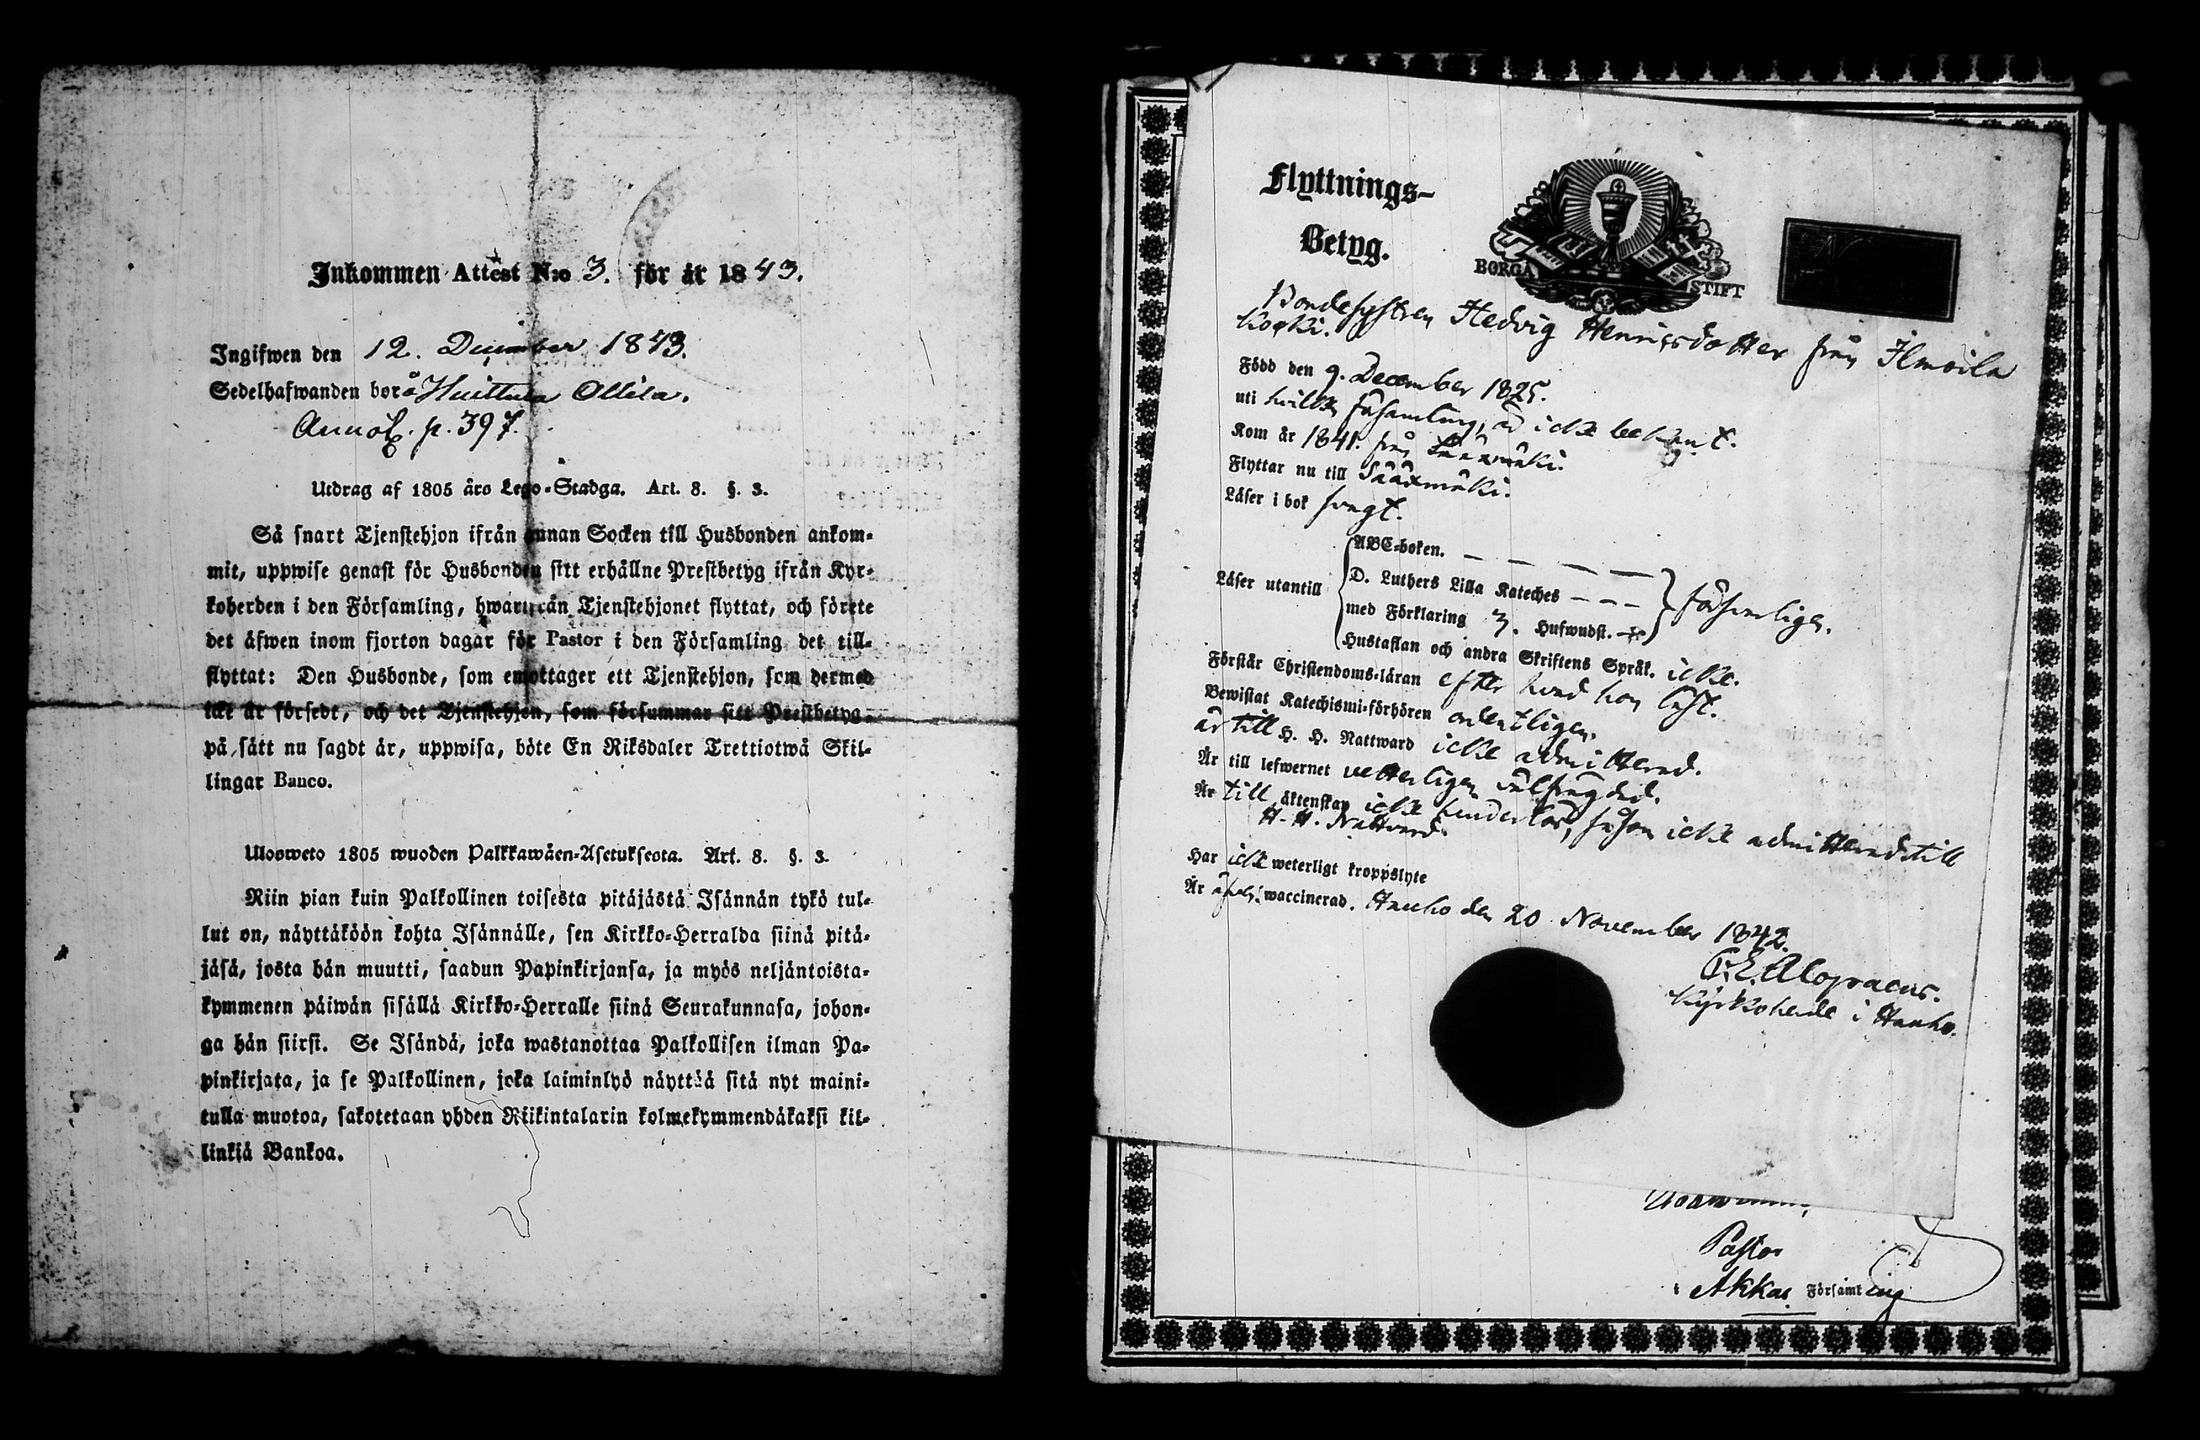 Inkommen Attest N:o 3. för år 1843.
Ingifwen den 12. December 1843.
Sedelhafwanden bor å Huittula Ollila.
Annot. p. 397.
Utdrag af 1805 års Lego-Stadga. Art. 8. §. 3.
Så snart Tjenstehjon ifrån annan Socken till Husbonden ankom-
mit, uppwise genast för Husbonden sitt erhållne Prestbetyg ifrån Kyr-
koherden i den Församling, hwarifrån Tjenstehjonet flyttat, och förete
det äfwen inom fjorton dagar för Pastor i den Församling det till-
flyttat: Den Husbonde, som emottager ett Tjenstehjon, som dermed
icke är försedt, och det Tjenstehjon, som försummar sitt Prestbetyg,
på sätt nu sagdt är, uppwisa, böte En Riksdaler Trettiotwå Skil-
lingar Banco.
Ulosweto 1805 wuoden Palkkawäen-Asetuksesta. Art. 8. §. 3.
Niin pian kuin Palkollinen toisesta pitäjästä Isännän tykö tul-
lut on, näyttäköön kohta Isännälle, sen Kirkko-Herralda siinä pitä-
jäsä, josta hän muutti, saadun Papinkirjansa, ja myös neljäntoista-
kymmenen päiwän sisällä Kirkko-Herralle siinä Seurakunnasa, johon-
ga hän siirsi. Se Isändä, joka wastanottaa Palkollisen ilman Pa-
pinkirjata, ja se Palkollinen, joka laiminlyö näyttää sitä nyt maini-
tulla muotoa, sakotetaan yhden Riikintalarin kolmekymmendäkaksi kil-
linkiä Bankoa.
Flyttnings-
Betyg.
BORGÅ STIFT
Bondesystren Hedvig Henricsdotter från Ilmoila
Koski.
Född den 9. December 1825.
uti hvilken församling, är icke bekant.
Kom år 1841. från Sääxmäki.
Flyttar nu till Sääxmäki.
Läser i bok svagt.
ABC-boken.
Läser utantill D. Luthers Lilla Kateches
med Förklaring 3. Hufwudst. försvarligen.
Hustaflan och andra Skriftens Språk. icke.
Förstår Christendoms-läran efter hvad hon läst.
Bewistat Katechismi-förhören ordentligen.
är till H. H. Nattward icke admitterad.
Är till lefwernet vetterligen välfrägdad.
Är till äktenskap icke hinderlös, såsom icke admitterad till
H. H. Nattvard.
Har icke weterligt kroppslyte
Är äfven waccinerad. Hauho den 20 November 1842.
Alopaeus.
Kyrkoherde i Hauho.
Pastor
i Akkas Församling